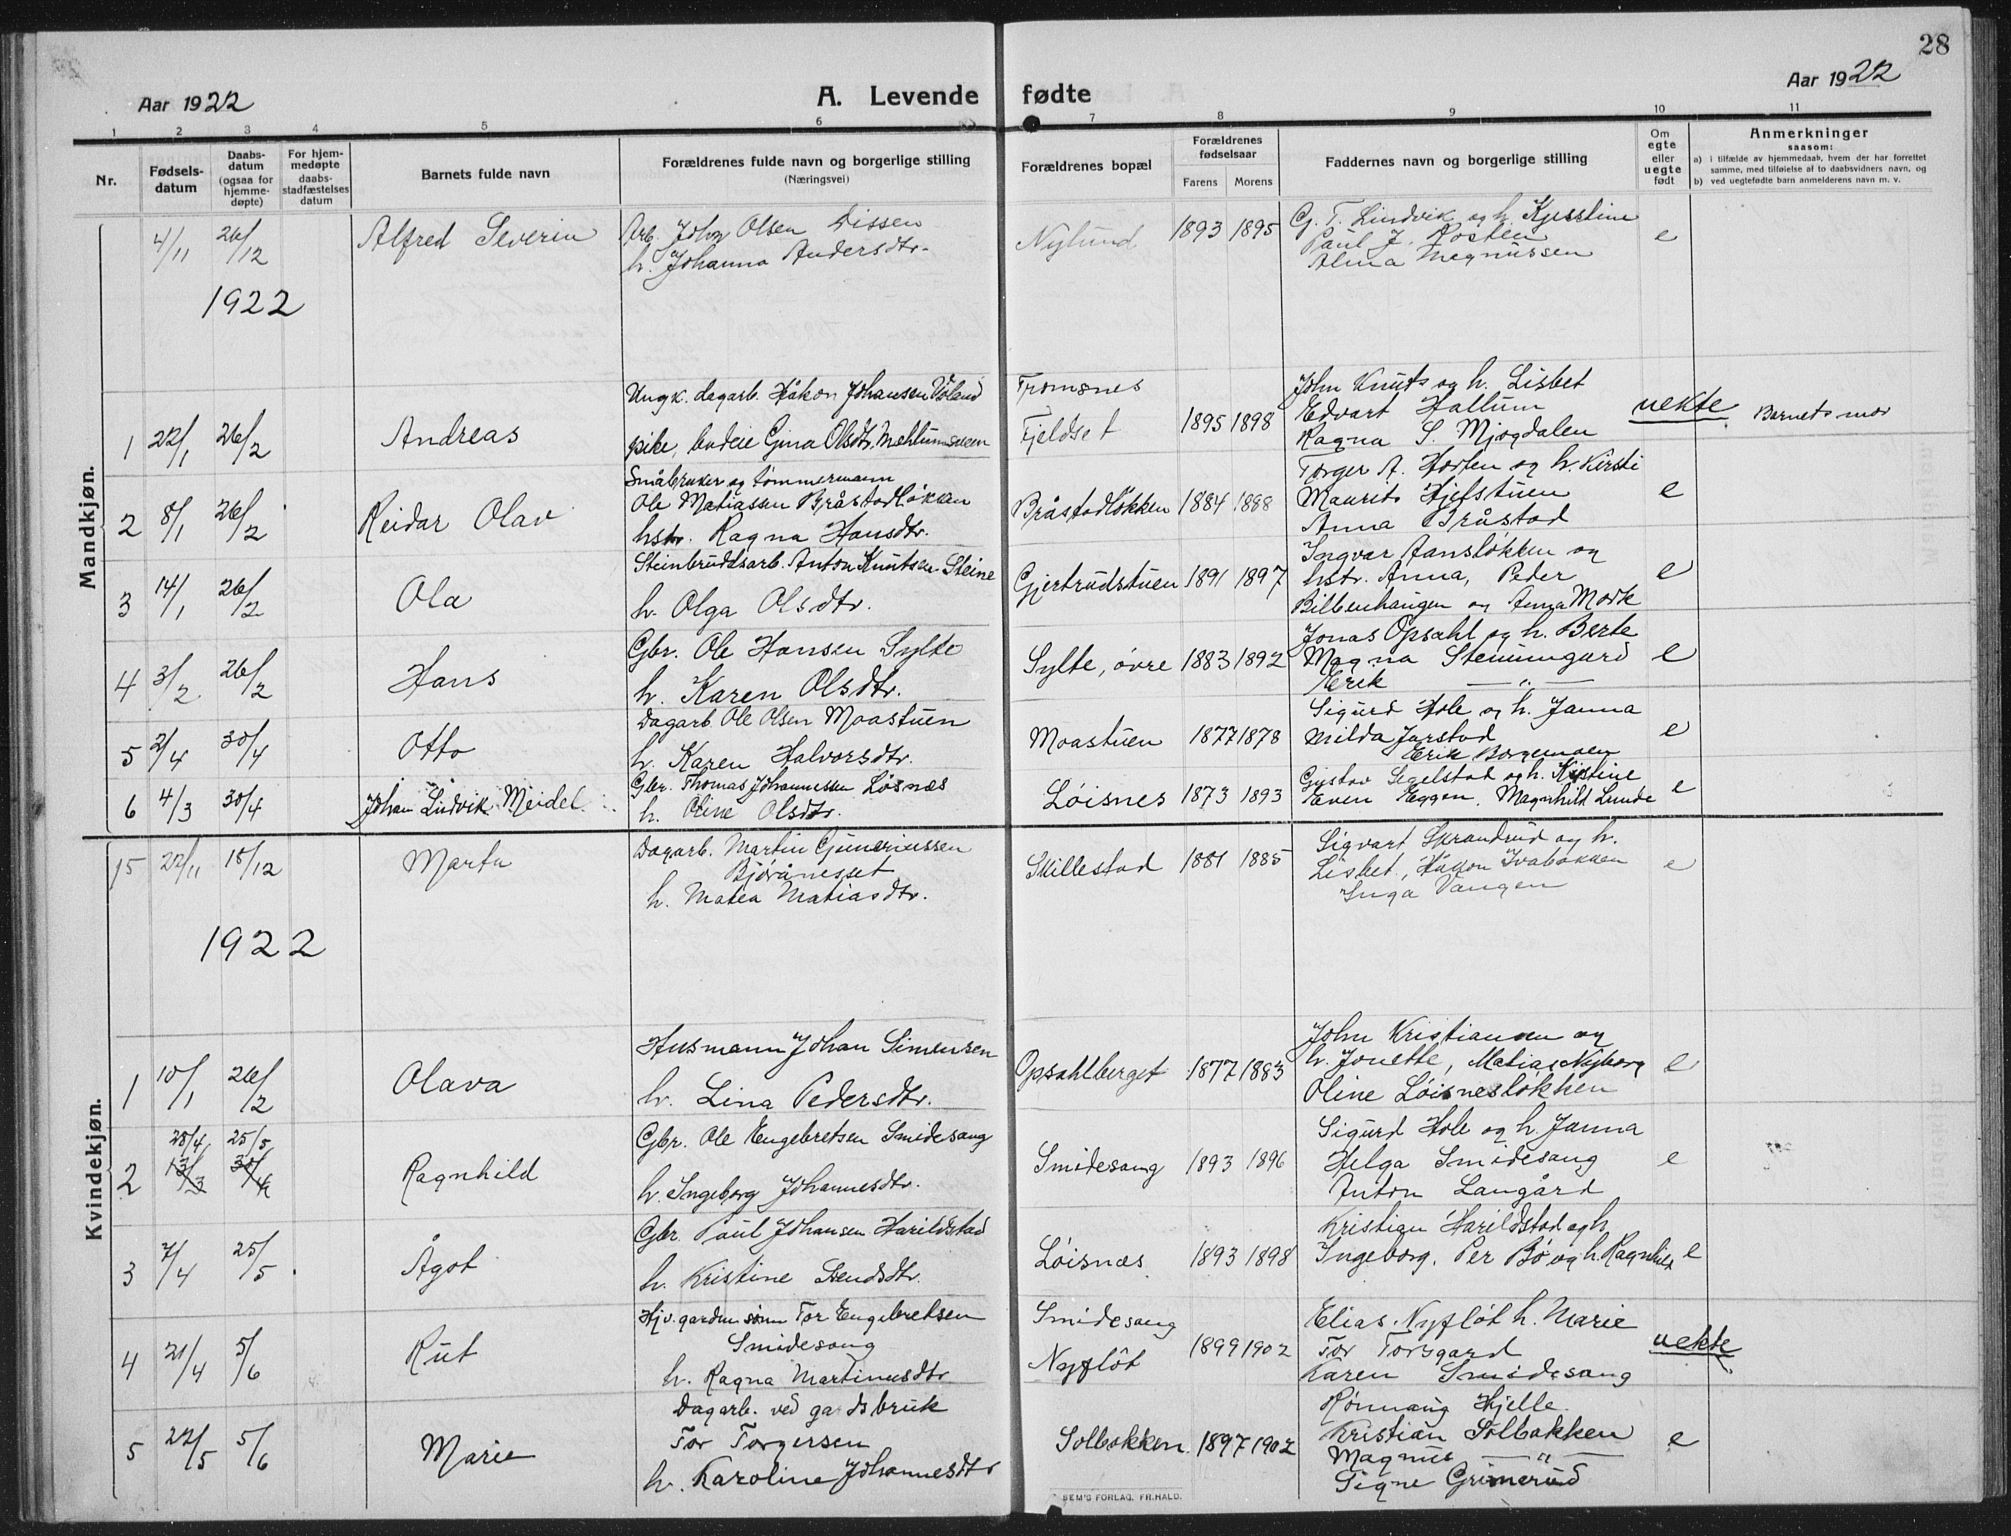 28
Aar 1922
A. Levende fødte
Aar 1922
1 2 3 4 5 6 7 8 9 10 11
Nr.
Fødsels-
datum
Daabs-
datum
(ogsaa for
hjemme-
døpte)
For hjem-
medøpte
daabs-
stadfæstelses
datum
Barnets fulde navn
Forældrenes fulde navn og borgerlige stilling
(Næringsvei)
Forældrenes bopæl
Forældrenes
fødselsaar
Farens Morens
Faddernes navn og borgerlige stilling
Om
egte
eller
uegte
født
Anmerkninger
saasom:
a) i tilfælde av hjemmedaab, hvem der har forrettet
samme, med tilføielse af to daabsvidners navn, og
b) ved uegtefødte barn anmelderens navn m. v.
Mandkjøn.
4/11 26/12 Alfred Severin
Arb. John Olsen Dissen
h. Johanna Andersdtr.
Nylund 1893 1895
G. T. Lindvik og h. Kjerstine
Paul J. Rosten
Alma Magnussen
e
1922
1 22/1 26/2 Andreas
Ungk. dagarb. Håkon Johansen Voland
pike, budeie Gina Olsdtr. Mehlumsveen
Tromsnes
Fjeldset 1895 1898
John Knuts og h. Lisbet
Edvart Hallum
Ragna S. Mjogdalen
uekte Barnets mor
2 8/1 26/2 Reidar Olav
Småbruker og tømmermann
Ole Matiassen Bråstadløkken
hstr. Ragna Hansdtr.
Bråstadløkken 1884 1888
Torger A. Horten og h. Kirsti
Maurits Hjefstuen
Anna Bråstad
e
3 14/1 26/2 Ola
Steinbruddsarb. Anton Knutsen Steine
h. Olga Olsdtr.
Gjertrudstuen 1891 1897
Ingvar Aansløkken og
hstr. Anna, Peder
Bilbenhaugen og Anna Mork
e
4 3/2 26/2 Hans
Gbr. Ole Hansen Sylte
h. Karen Olsdtr.
Sylte, øvre 1883 1892
Jonas Opsahl og h. Berte
Magna Stemmgard
Erik — " —
e
5 2/4 30/4 Otto
Dagarb. Ole Olsen Moastuen
h. Karen Halvorsdtr.
Moastuen 1877 1878
Sigurd Hole og h. Janna
Milda Jarstad
Erik Borgemoen
e
6 4/3 30/4 Johan Ludvik Meidel
Gbr. Thomas Johannessen Løsnæs
h. Oline Olsdtr.
Løisnes 1873 1893
Gustav Segelstad og h. Kristine
Even Eggen, Magnhild Lunde
e
Kvindekjøn.
15 22/11 18/12 Marta
Dagarb. Martin Gunerinssen
Bjørånesset
h. Matea Matiasdtr.
Skillestad 1881 1885
Sigvart Skrandrud og h.
Lisbet, Håkon Ivabakken
Inga Vangen
e
1922
1 10/1 26/2 Olava
Husmann Johan Simensen
h. Lina Pedersdtr.
Opsahlberget 1877 1883
John Kristiansen og
h. Jonette, Matias Nyborg
Oline Løisnesløkken
e
28/4 25/5
2 13/3 30/4 Ragnhild
Gbr. Ole Engebretsen Smidesang
h. Ingeborg Johannesdtr.
Smidesang 1893 1896
Sigurd Hole og h. Janna
Helga Smidesang
Anton Langård
e
3 7/4 25/5 Ågot
Gbr. Paul Johansen Harildstad
h. Kristine Svendsdtr.
Løisnæs 1893 1898
Kristian Harildstad og h.
Ingeborg. Per Bø og h. Ragnhild
e
4 21/4 5/6 Rut
Hjv. gardm. sønn Tor Engebretsen
Smidesang
h. Ragna Martinusdtr
Smidesang
Nyfløt 1899 1902
Elias Nyfløt h. Marie
Tor Torsgard
Karen Smidesang
uekte
5 22/5 5/6 Marie
Dagarb. ved gardsbruk
Tor Torgersen
h. Karoline Johannesdtr
Solbakken. 1897 1902
Rønnaug Hjelle
Kristian Solbakken
Magnus — " —
Signe Grimerud
e
SEM'S FORLAG, FR.HALD.